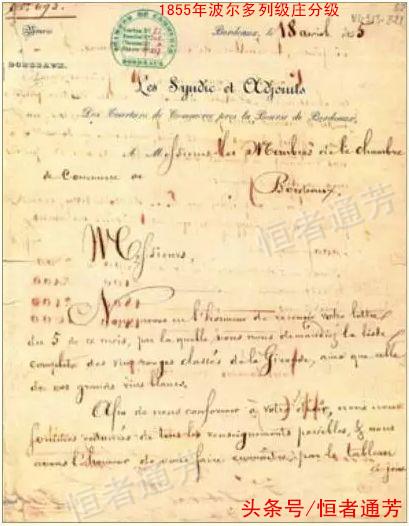 1855年波尔多列级庄分级
Bourse
BORDEAUX.
CHAMBRE DE COMMERCE
BORDEAUX
Bordeaux, le 18 avril 1855
Les Syndic et Adjoints
Des Courtiers de Commerce près la Bourse de Bordeaux,
A Messieurs les Membres de la chambre
de Commerce de
Bordeaux.
恒者通芳
Messieurs
Nous avons eu l'honneur de recevoir votre lettre
du 5 de ce mois, par laquelle vous nous demandiez la liste
complète des vins rouges classés de la Gironde, ainsi que celle
de nos grands vins blancs.
Afin de nous conformer à votre désir, nous nous
sommes entourés de tous les renseignements possibles, & nous
avons l'honneur de vous faire connaître, par le tableau
ci-joint
恒者通芳
头条号/恒者通芳